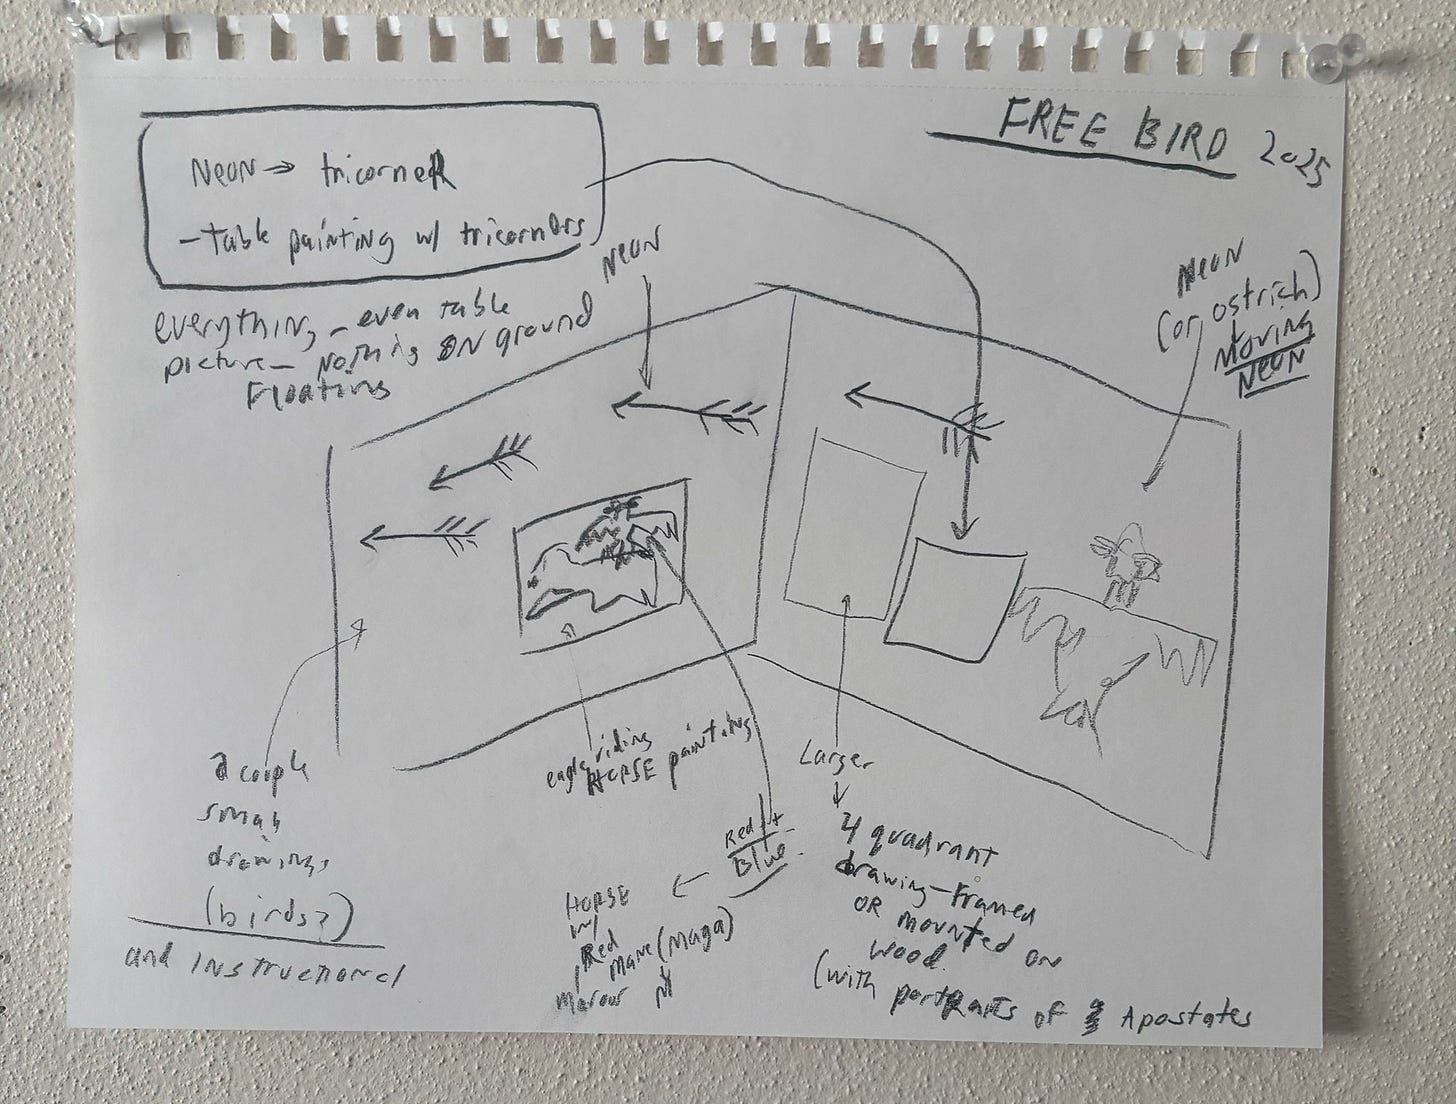 FREE BIRD 2025
NEON → tricorneR
- table painting w/ tricorners
everything - even table
picture - nothing ON ground
Floating
NEON
NEON
(or ostrich)
Moving
NEON
a couple
small
drawings
(birds?)
and instructional
eagle riding
HORSE painting
Red +
Blue
HORSE
w/
Red
mane (maga)
Larger
4 quadrant
drawing - Framed
OR mounted on
wood
(with portRaits of Apostates